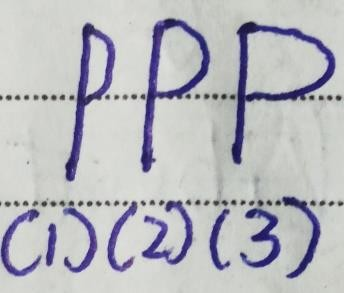 P P P
(1) (2) (3)